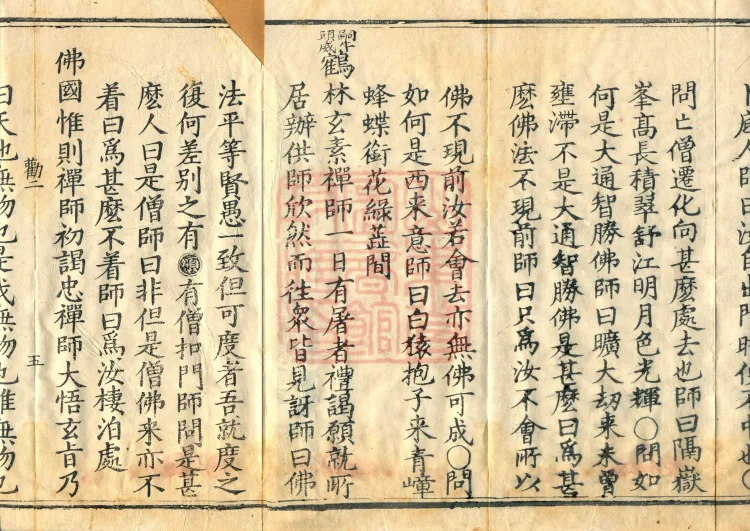 問亡僧遷化向甚麽處去也師曰隔嶽
峯高長積翠舒江明月色光輝○問如
何是大通智勝佛師曰曠大劫來未曾
壅滯不是大通智勝佛是甚麽曰爲甚
麽佛法不現前師曰只爲汝不會所以
佛不現前汝若會去亦無佛可成○問
如何是西来意師曰白猿抱子来青嶂
蜂蝶銜花綠蘂間
鶴林玄素禪師一日有屠者禮謁願就所
居辦供師欣然而往衆皆見訝師曰佛
法平等賢愚一致但可度者吾就度之
復何差别之有 有僧扣門師問是甚
麽人曰是僧師曰非但是僧佛来亦不
着曰爲甚麽不着師曰爲汝棲泊處
佛國惟則禪師初謁忠禪師大悟玄旨乃
五
曰天地無物也是我無物也惟無物也